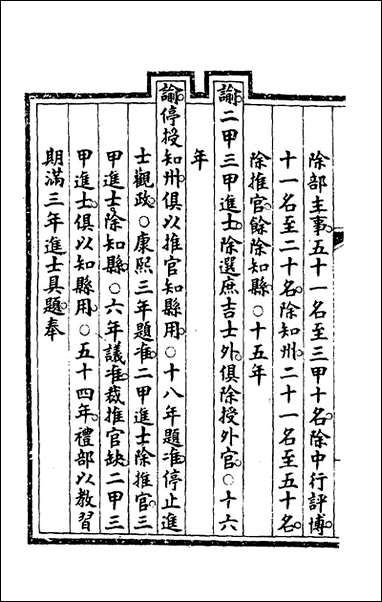 除部主事五十一名至三甲十名除中行評博
十一名至二十名除知州二十一名至五十名
除推官餘除知縣○十五年
諭二甲三甲進士除選庶吉士外俱除授外官○十六
年
諭停授知州俱以推官知縣用○十八年題准停止進
士觀政○康熙三年題准二甲進士除推官三
甲進士除知縣○六年議准裁推官缺二甲三
甲進士俱以知縣用○五十四年禮部以教習
期滿三年進士具題奉